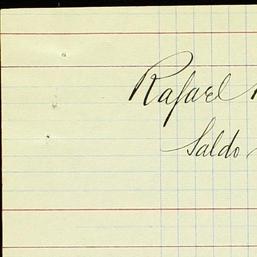 Rafael
Saldo